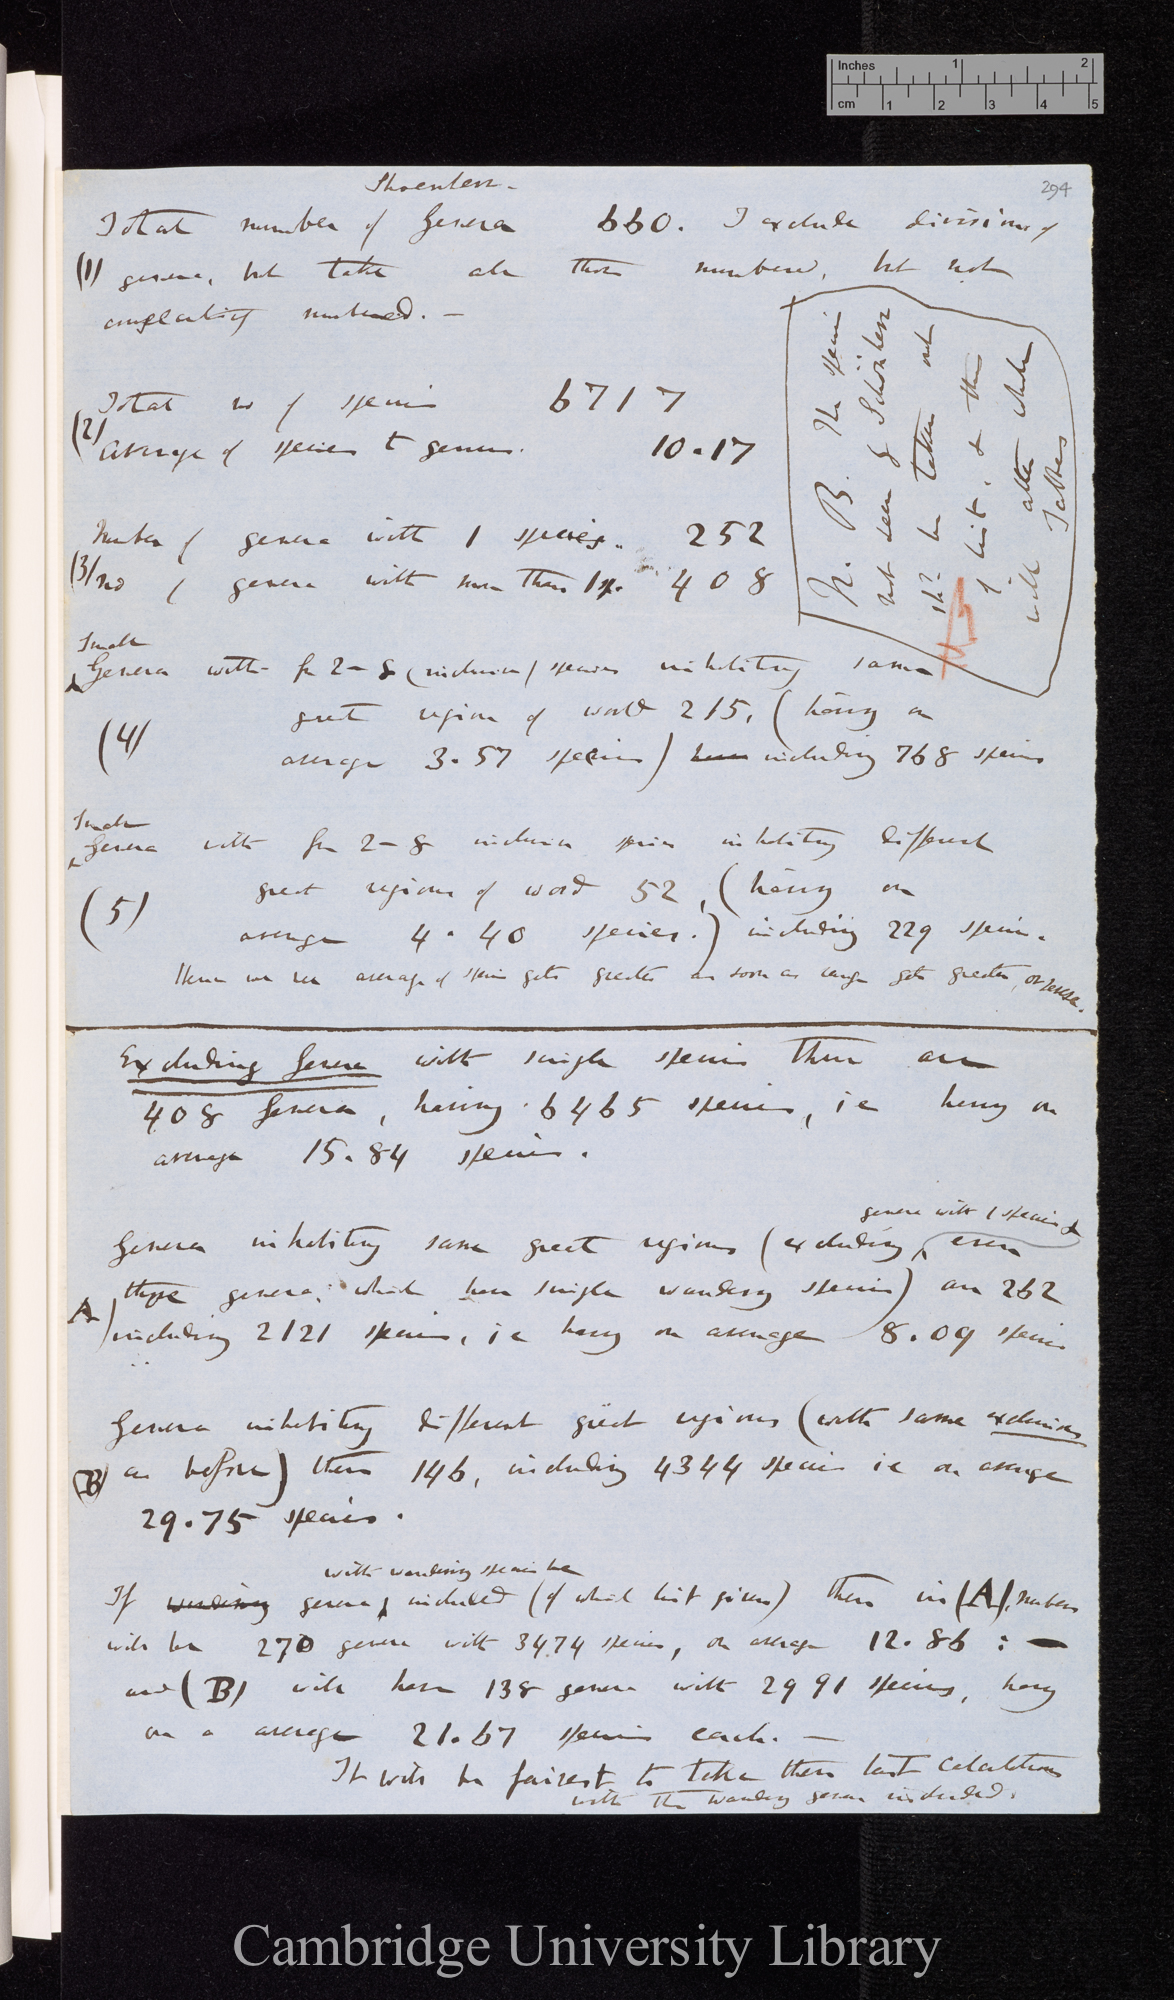 Shoenherr -
294
Total number of Genera 660. I exclude divisions of
(1) genera, but take all those numbered, but not
numbered. —
Total no of species 6717
(2) average of species to genus. 10.17
Number of genera with 1 species. 252
(3) no of genera with more than 1 sp. 408
N. B. The species
not seen by Schönherr
shd be taken out
of list, & this
will alter whole
Tables
Small
Genera with fr 2-8 (inclusive) species inhabiting same
(4) great region of world 215, (having on
average 3.57 species) have including 768 species
Small
Genera with fr 2-8 inclusive species inhabiting different
great regions of world 52, (having on
(5)
average 4.40 species.) including 229 species.
Hence we see average of species gets greater as soon as range gets greater, or reverse.
Excluding Genera with single species there are
408 Genera, having 6465 species, i e having on
average 15.84 species.
genera with 1 species &
Genera inhabiting same great regions (excluding even
those genera, which have single wandering species) are 262
A) including 2121 species, i e having on average 8.09 species
Genera inhabiting different great regions (with same exclusions
(B) as before) there 146, including 4344 species i e on average
29.75 species.
with wandering species be
If wandering genera included (of which list given) then in (A), numbers
will be 270 genera with 3474 species, on average 12.86 : —
and (B) will have 138 genera with 2991 species, having
on a average 21.67 species each. —
It will be fairest to take these last calculations
with the wandering genera included.
Inches 1 2
cm 1 2 3 4 5
Cambridge University Library